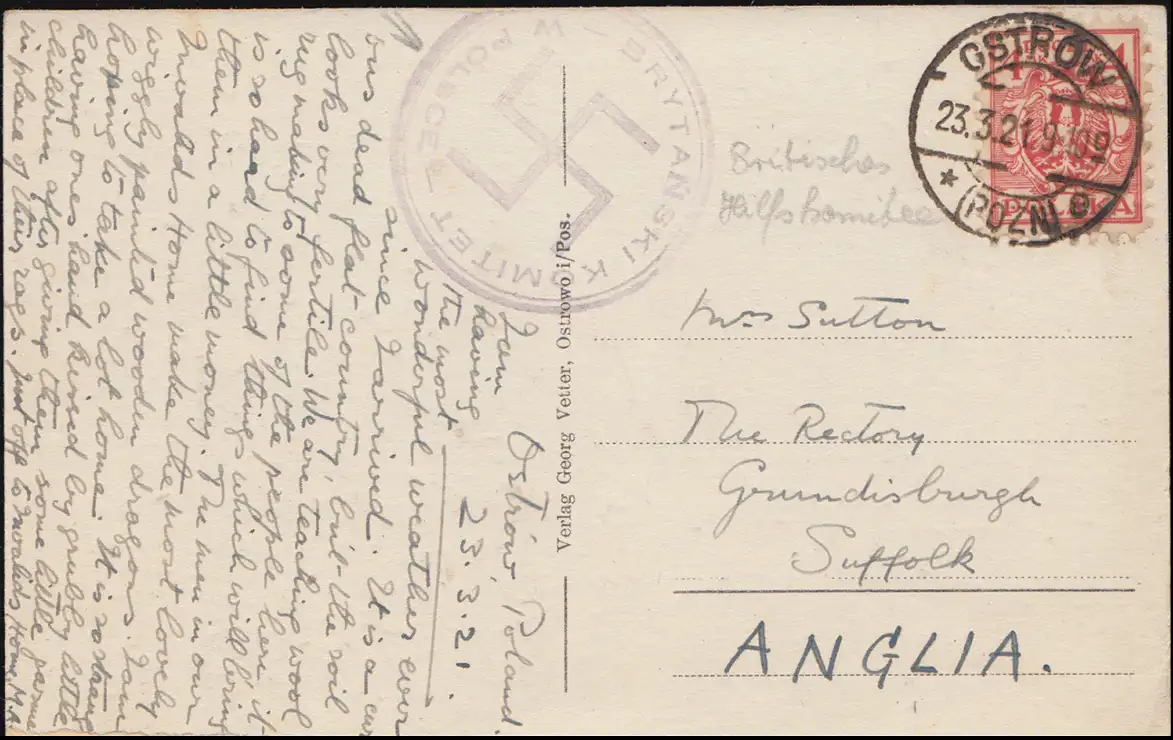 Ostrów Poland.
23.3.21.
I am
having
the most
wonderful weather ever
since I arrived. It is a curi
ous dead flat country, but the soil
looks very fertile. We are teaching wool
rug making to some of the people here it
is so hard to find things which will bring
them in a little money. The men in our
Invalids Home make the most lovely
wiggly painted wooden dragons. I am
hoping to take a lot home. It is so strange
having ones hand kissed by grubby little
children after giving them some little garme
in place of their rags. Just off to Invalids Home. M.A.
BRYTAŃSKI KOMITET
W POLSCE
Verlag Georg Vetter, Ostrowo i/Pos.
Britisches
Hilfskomitee
OSTRÓW
23.3.21.9-10V
* (POZN) a
4 4
POLSKA
Mrs Sutton
The Rectory
Grundisburgh
Suffolk
ANGLIA.